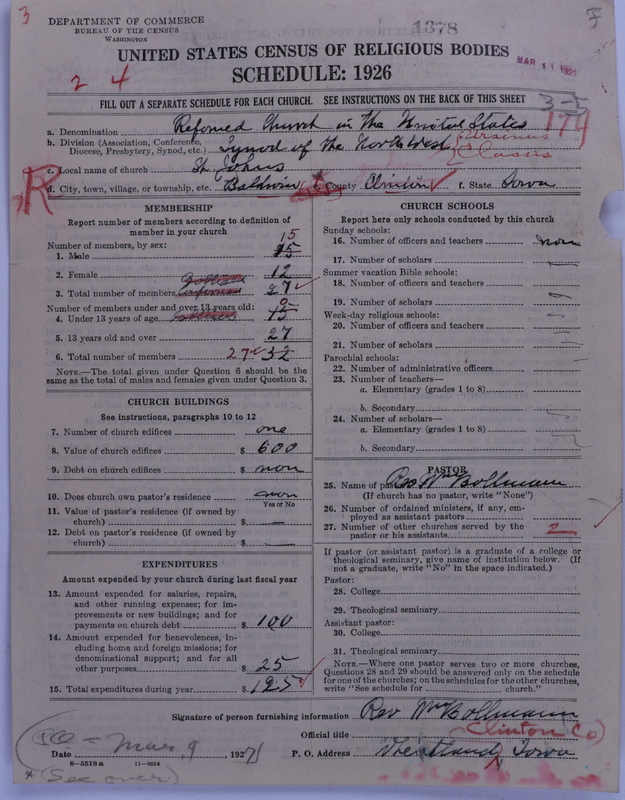 3
1378
F
DEPARTMENT OF COMMERCE
BUREAU OF THE CENSUS
WASHINGTON
UNITED STATES CENSUS OF RELIGIOUS BODIES
MAR 11 1927
SCHEDULE: 1926
2 4
FILL OUT A SEPARATE SCHEDULE FOR EACH CHURCH. SEE INSTRUCTIONS ON THE BACK OF THIS SHEET
3-5
174
a. Denomination Reformed Church in the United States
b. Division (Association, Conference, Diocese, Presbytery, Synod, etc.) Synod of the Northwest
c. Local name of church St. Johns
R
d. City, town, village, or township, etc. Baldwin e. County Clinton f. State Iowa
MEMBERSHIP
Report number of members according to definition of member in your church
Number of members, by sex:
15
1. Male 15
2. Female 12
3. Total number of members 27
Number of members under and over 13 years old:
0
4. Under 13 years of age 15
5. 13 years old and over 27
6. Total number of members 27 32
NOTE.—The total given under Question 6 should be the same as the total of males and females given under Question 3.
CHURCH BUILDINGS
See instructions, paragraphs 10 to 12
7. Number of church edifices one
8. Value of church edifices $ 600
9. Debt on church edifices $ non
10. Does church own pastor's residence non
Yes or No
11. Value of pastor's residence (if owned by church) $
12. Debt on pastor's residence (if owned by church) $
EXPENDITURES
Amount expended by your church during last fiscal year
13. Amount expended for salaries, repairs, and other running expenses; for improvements or new buildings; and for payments on church debt $ 100
14. Amount expended for benevolences, including home and foreign missions; for denominational support; and for all other purposes $ 25
15. Total expenditures during year $ 125
CHURCH SCHOOLS
Report here only schools conducted by this church
Sunday schools:
16. Number of officers and teachers non
17. Number of scholars
Summer vacation Bible schools:
18. Number of officers and teachers
19. Number of scholars
Week-day religious schools:
20. Number of officers and teachers
21. Number of scholars
Parochial schools:
22. Number of administrative officers
23. Number of teachers—
a. Elementary (grades 1 to 8)
b. Secondary
24. Number of scholars—
a. Elementary (grades 1 to 8)
b. Secondary
PASTOR
25. Name of pastor Rev Wm Bollmann
(If church has no pastor, write "None")
26. Number of ordained ministers, if any, employed as assistant pastors
27. Number of other churches served by the pastor or his assistants 2
If pastor (or assistant pastor) is a graduate of a college or theological seminary, give name of institution below. (If not a graduate, write "No" in the space indicated.)
Pastor:
28. College
29. Theological seminary
Assistant pastor:
30. College
31. Theological seminary
NOTE.—Where one pastor serves two or more churches, Questions 28 and 29 should be answered only on the schedule for one of the churches; on the schedules for the other churches, write "See schedule for church."
Signature of person furnishing information Rev Wm Bollmann
Official title
(Clinton Co)
Date Mar 9 1927
P. O. Address Wheatland, Iowa
8-5518a 11-9854
* (See over)